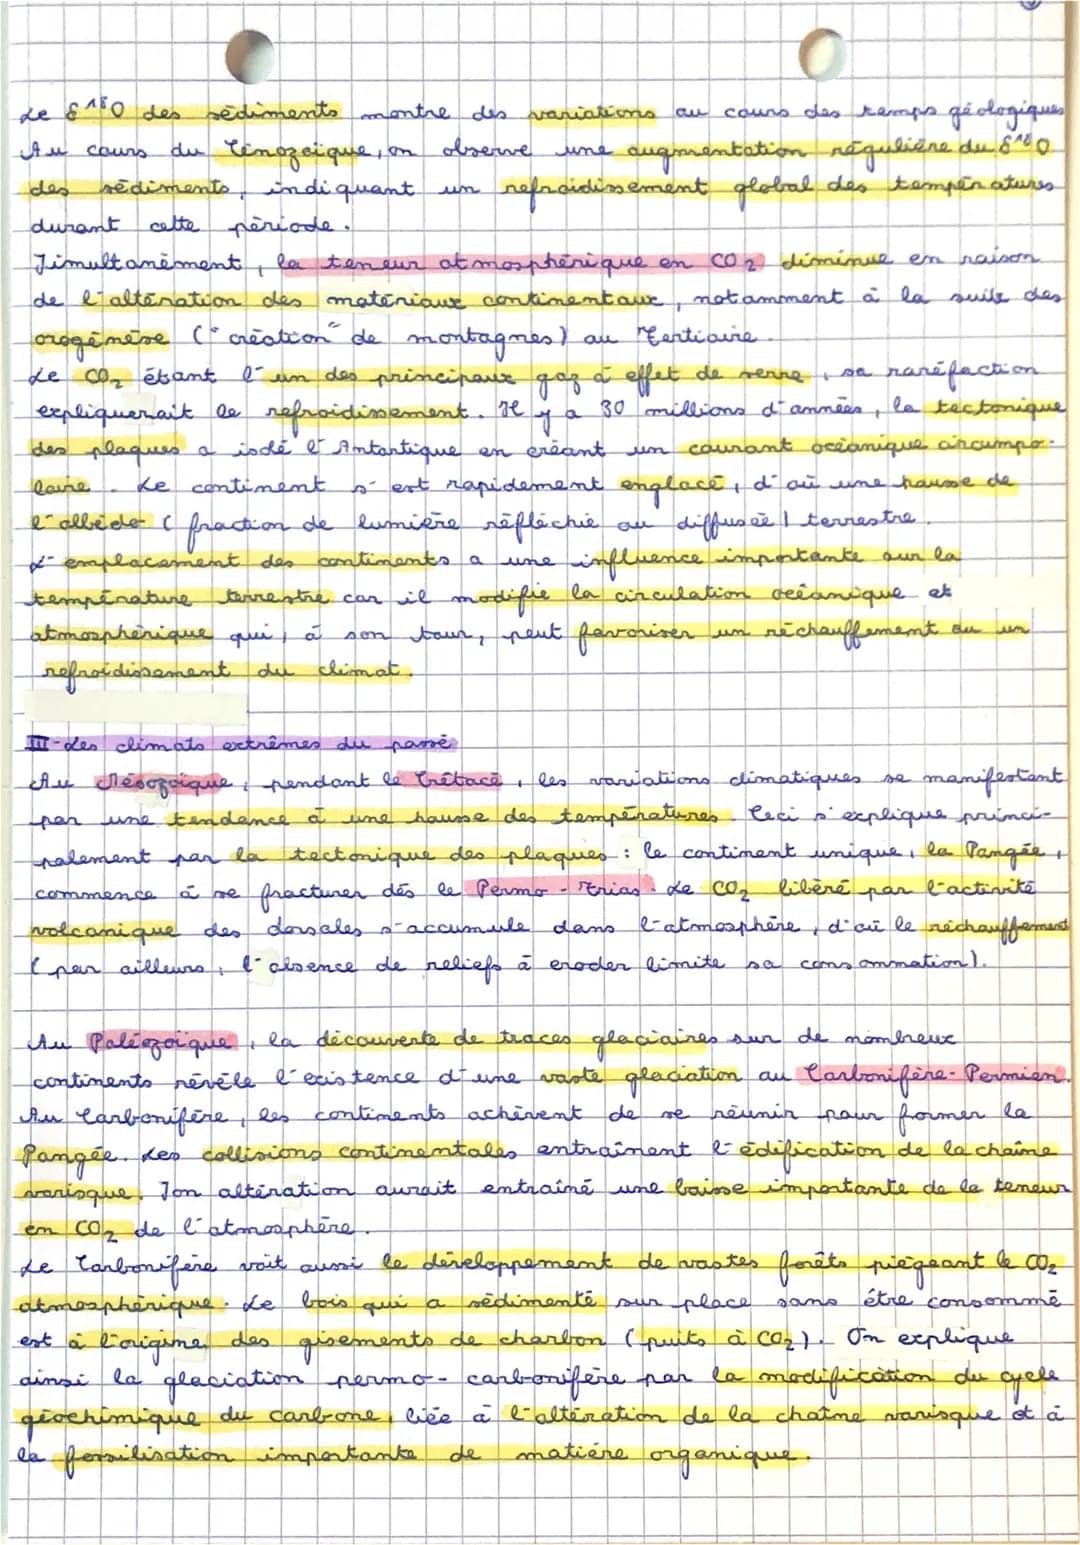 Le δ¹⁸O des sédiments montre des variations au cours des temps géologiques
Au cours du Cénozoïque, on observe une augmentation régulière du δ¹⁸O
des sédiments, indiquant un refroidissement global des températures
durant cette période.
Simultanément, la teneur atmosphérique en CO₂ diminue en raison
de l'altération des matériaux continentaux, notamment à la suite des
orogénèse ("création" de montagnes) au Tertiaire.
Le CO₂ étant l'un des principaux gaz à effet de serre, sa raréfaction
expliquerait le refroidissement. Il y a 30 millions d'années, la tectonique
des plaques a isolé l'Antartique en créant un courant océanique circumpo-
laire. Le continent s'est rapidement englacé, d'où une hausse de
l'albédo (fraction de lumière réfléchie ou diffusée) terrestre.
L'emplacement des continents a une influence importante sur la
température terrestre car il modifie la circulation océanique et
atmosphérique qui, à son tour, peut favoriser un réchauffement ou un
refroidissement du climat.
III - Les climats extrêmes du passé
Au Mésozoïque, pendant le Crétacé, les variations climatiques se manifestent
par une tendance à une hausse des températures. Ceci s'explique princi-
palement par la tectonique des plaques : le continent unique, la Pangée,
commence à se fracturer dès le Permo-Trias. Le CO₂ libéré par l'activité
volcanique des dorsales s'accumule dans l'atmosphère, d'où le réchauffement
(par ailleurs, l'absence de reliefs à eroder limite sa consommation).
Au Paléozoïque, la découverte de traces glaciaires sur de nombreux
continents révèle l'existence d'une vaste glaciation au Carbonifère-Permien.
Au Carbonifère, les continents achèvent de se réunir pour former la
Pangée. Les collisions continentales entraînent l'édification de la chaîne
varisque. Son altération aurait entraîné une baisse importante de la teneur
en CO₂ de l'atmosphère.
Le Carbonifère voit aussi le développement de vastes forêts piégeant le CO₂
atmosphérique. Le bois qui a sédimenté sur place sans être consommé
est à l'origine des gisements de charbon (puits à CO₂). On explique
ainsi la glaciation permo-carbonifère par la modification du cycle
géochimique du carbone, liée à l'altération de la chaîne varisque et à
la fossilisation importante de matière organique.